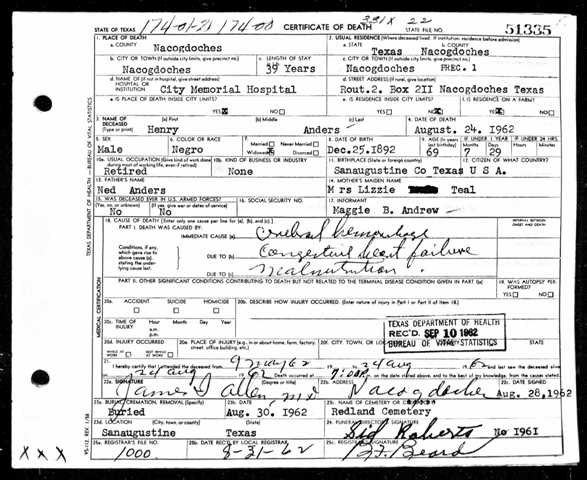 174-01-21 174-00 331X 22
STATE OF TEXAS CERTIFICATE OF DEATH STATE FILE NO. 51335
1. PLACE OF DEATH 2. USUAL RESIDENCE (Where deceased lived. If institution: residence before admission)
a. COUNTY Nacogdoches a. STATE Texas b. COUNTY Nacogdoches
b. CITY OR TOWN (If outside city limits, give precinct no.) c. LENGTH OF STAY c. CITY OR TOWN (If outside city limits, give precinct no.)
Nacogdoches 39 Years Nacogdoches PREC. 1
d. NAME OF (If not in hospital, give street address) HOSPITAL OR INSTITUTION City Memorial Hospital d. STREET ADDRESS (If rural, give location) Rout.2. Box 2II Nacogdoches Texas
e. IS PLACE OF DEATH INSIDE CITY LIMITS? e. IS RESIDENCE INSIDE CITY LIMITS? f. IS RESIDENCE ON A FARM?
YES NO YES NO YES NO
3. NAME OF DECEASED (Type or print) (a) First (b) Middle (c) Last 4. DATE OF DEATH
Henry Anders August. 24. I962
5. SEX 6. COLOR OR RACE 7. Married Never Married 8. DATE OF BIRTH 9. AGE (In years last birthday) IF UNDER 1 YEAR IF UNDER 24 HRS.
Male Negro Widowed Divorced Dec.25.I892 69 7 29
10a. USUAL OCCUPATION (Give kind of work done during most of working life, even if retired) 10b. KIND OF BUSINESS OR INDUSTRY 11. BIRTHPLACE (State or foreign country) 12. CITIZEN OF WHAT COUNTRY?
Retired None Sanaugustine Co Texas U S A.
13. FATHER'S NAME 14. MOTHER'S MAIDEN NAME
Ned Anders Mrs Lizzie Teal
15. WAS DECEASED EVER IN U.S. ARMED FORCES? 16. SOCIAL SECURITY NO. 17. INFORMANT
(Yes, no, or unknown) (If yes, give war or dates of service)
No No Maggie B. Andrew
18. CAUSE OF DEATH (Enter only one cause per line for (a), (b), and (c).) INTERVAL BETWEEN ONSET AND DEATH
PART I. DEATH WAS CAUSED BY:
IMMEDIATE CAUSE (a) Cerebral hemorrhage
Conditions, if any, which gave rise to above cause (a) stating the underlying cause last.
DUE TO (b) Congestive heart failure
DUE TO (c) Malnutrition
PART II. OTHER SIGNIFICANT CONDITIONS CONTRIBUTING TO DEATH BUT NOT RELATED TO THE TERMINAL DISEASE CONDITION GIVEN IN PART I(a) 19. WAS AUTOPSY PERFORMED?
YES NO
20a. ACCIDENT SUICIDE HOMICIDE 20b. DESCRIBE HOW INJURY OCCURRED. (Enter nature of injury in Part I or Part II of item 18.)
20c. TIME OF INJURY Hour Month Day Year
a.m.
p.m.
TEXAS DEPARTMENT OF HEALTH
REC'D SEP 10 1962
BUREAU OF VITAL STATISTICS
20d. INJURY OCCURRED WHILE AT WORK NOT WHILE AT WORK 20e. PLACE OF INJURY (e.g., in or about home, farm, factory, street, office building, etc.) 20f. CITY, TOWN, OR LOCATION COUNTY STATE
21. I hereby certify that I attended the deceased from 62 24 aug 62
24 aug 62 Death occurred at
22a. SIGNATURE (Degree or title) 22b. ADDRESS 22c. DATE SIGNED
James Allen, MD Nacogdoches Aug. 28,I962
23a. BURIAL, CREMATION, REMOVAL (Specify) 23b. DATE 23c. NAME OF CEMETERY OR CREMATORY
Buried Aug. 30. I962 Redland Cemetery
23d. LOCATION (City, town, or county) (State) 24. FUNERAL DIRECTOR'S SIGNATURE
Sanaugustine Texas Sid Roberts No I96I
25a. REGISTRAR'S FILE NO. 25b. DATE REC'D BY LOCAL REGISTRAR 25c. REGISTRAR'S SIGNATURE
XXX 1000 8-31-62
TEXAS DEPARTMENT OF HEALTH — BUREAU OF VITAL STATISTICS
MEDICAL CERTIFICATION